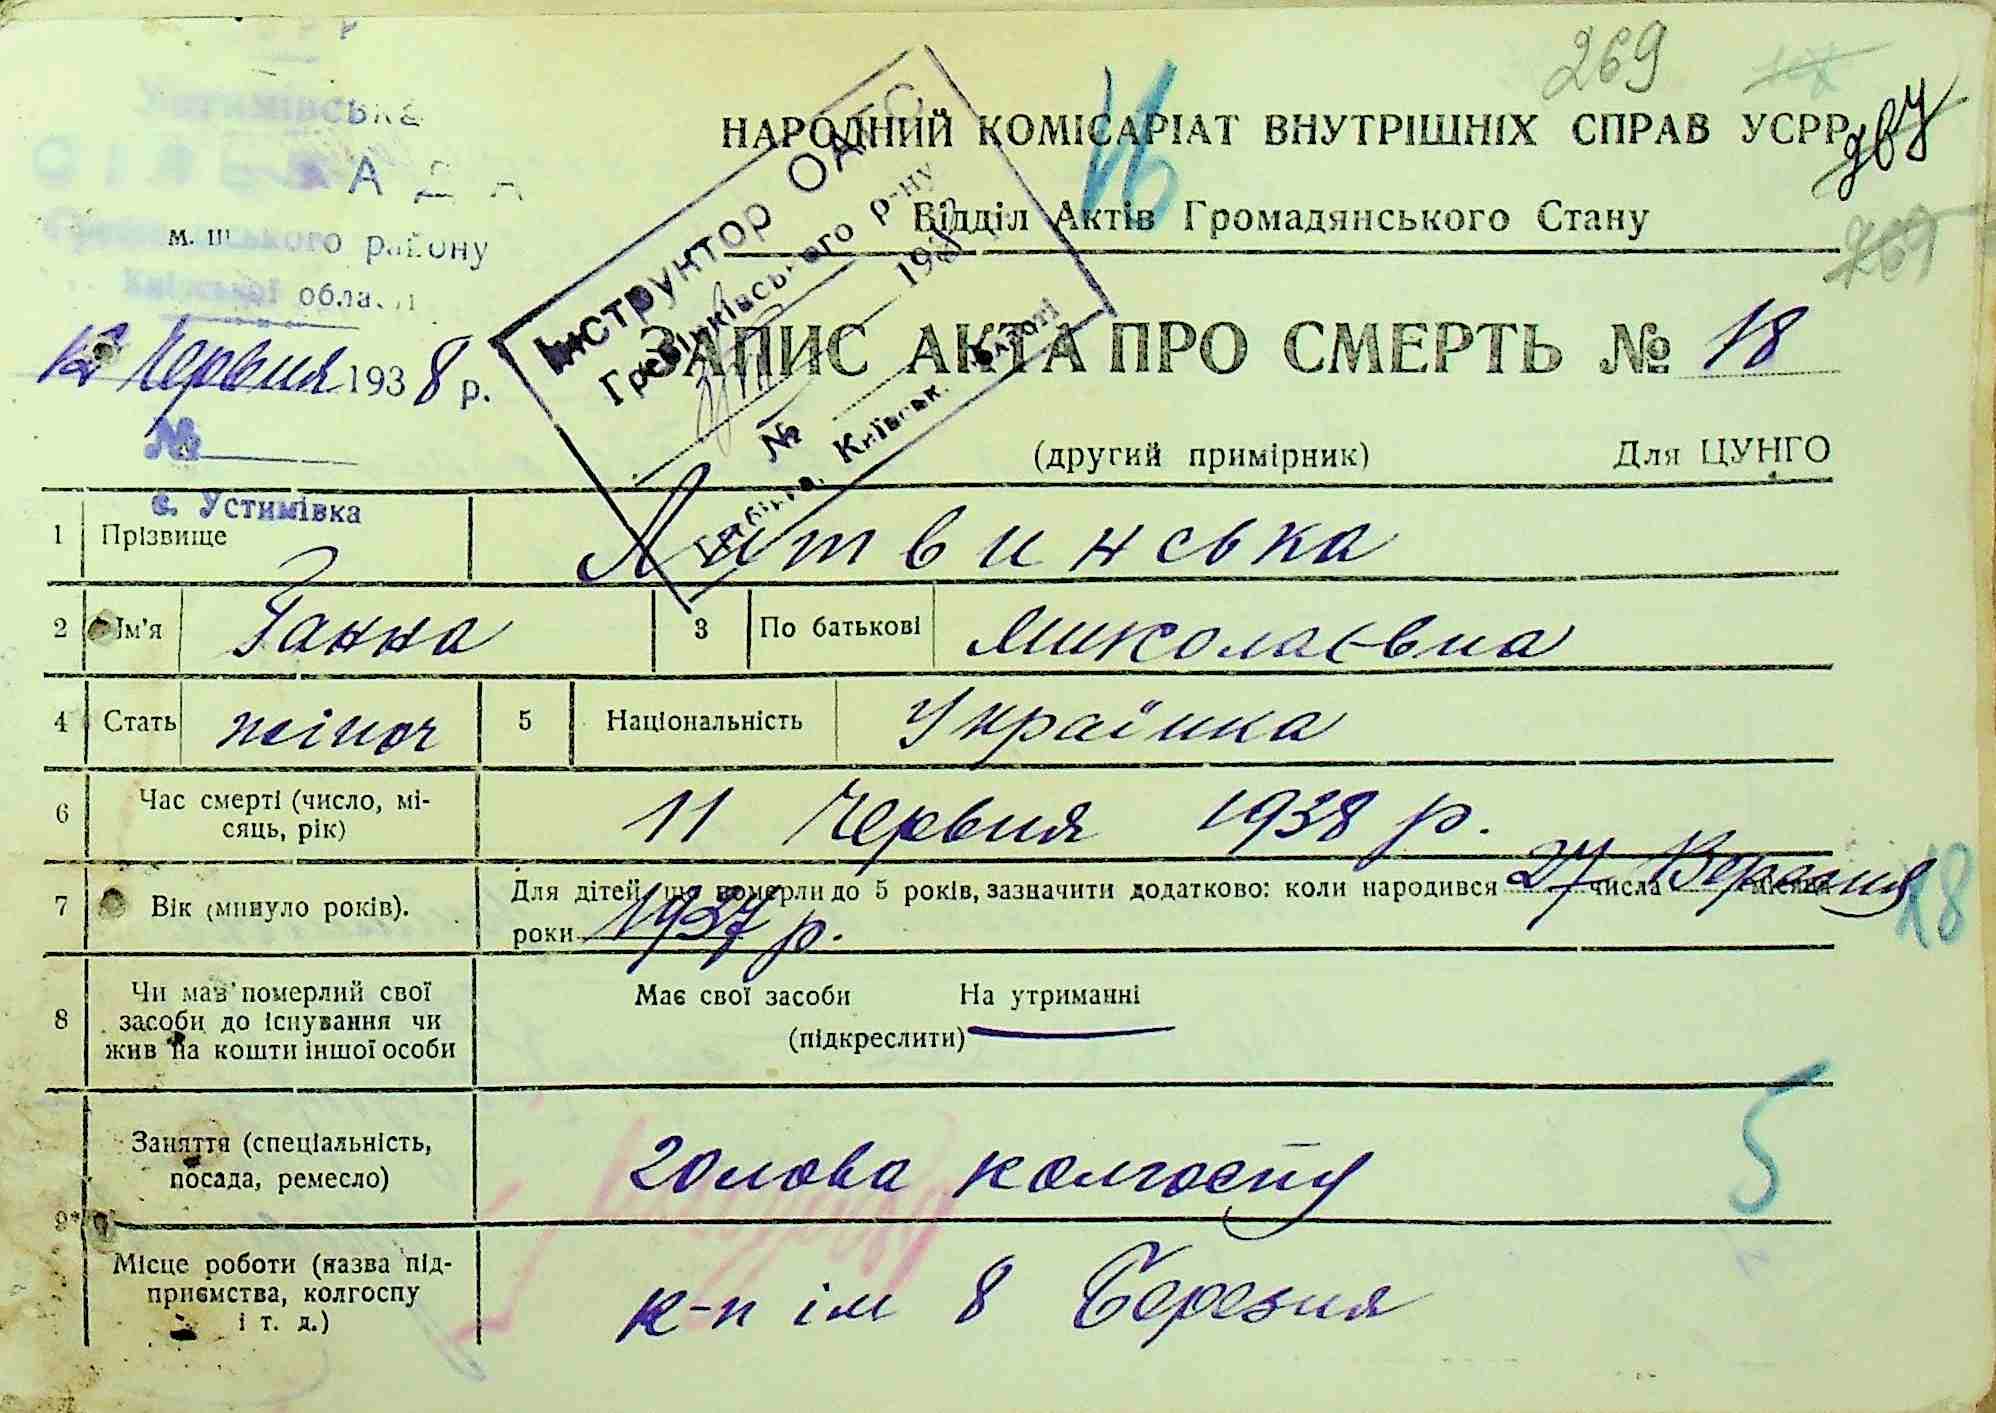 269
267
НАРОДНИЙ КОМІСАРІАТ ВНУТРІШНІХ СПРАВ УСРР
Відділ Актів Громадянського Стану
269
Устимівська
РАДА
району
Київської області
12 Червня 1938 р.
№
с. Устимівка
Інструктор ОАГС
Гребінківського р-ну
193
№
Гребінка, Київськ. області
ЗАПИС АКТА ПРО СМЕРТЬ № 18
(другий примірник) Для ЦУНГО
1 Прізвище Литвинська
2 Ім'я Ганна 3 По батькові Миколаєвна
4 Стать жіноч 5 Національність Українка
6 Час смерті (число, мі-
сяць, рік) 11 Червня 1938 р.
7 Вік (минуло років). Для дітей, що померли до 5 років, зазначити додатково: коли народився 27 числа Вересня місяця
роки 1937 р.
18
8 Чи мав померлий свої
засоби до існування чи
жив на кошти іншої особи
Має свої засоби На утриманні
(підкреслити)
5
9* Заняття (спеціальність,
посада, ремесло) голова колгоспу
Місце роботи (назва під-
приємства, колгоспу
і т. д.) к-п ім 8 Березня